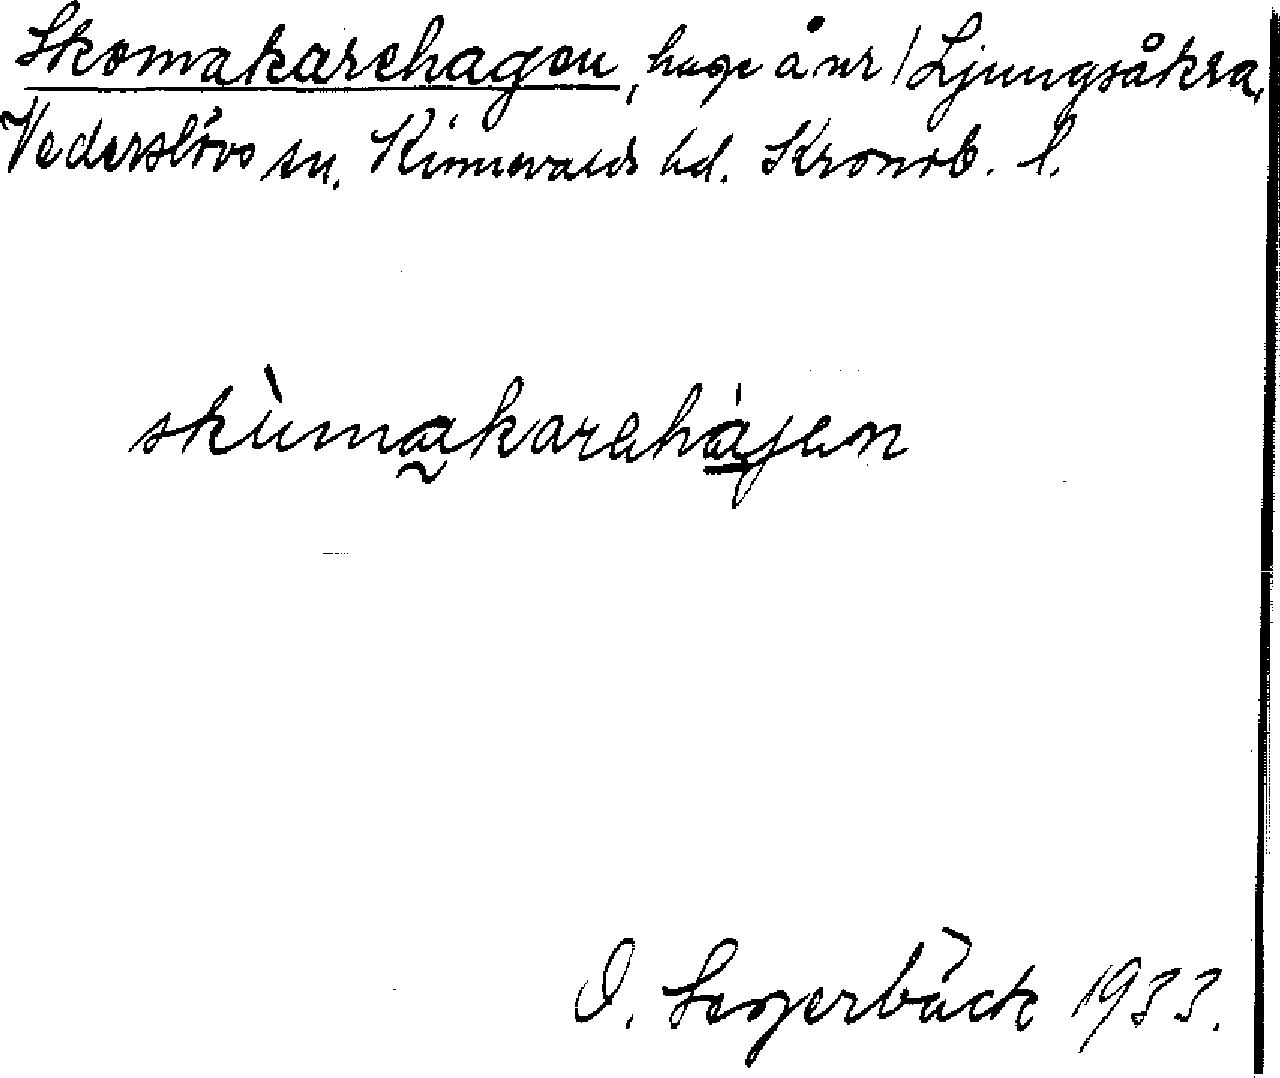 Skomakarehagen, hage å nr 1 Ljungsåkra,
Vederslövs sn. Kinnevalds hd. Kronob. l.
skùmakarehájen
O. Segerbäck 1933.